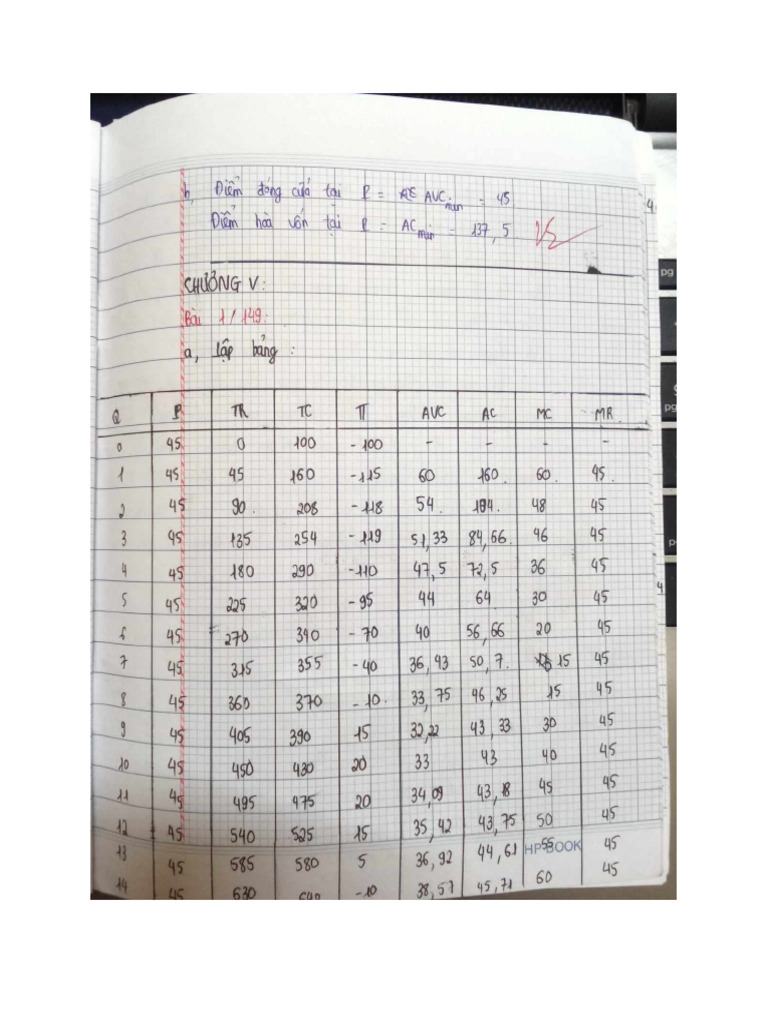 b, Điểm đóng cửa tại P = AVCmin = 45
Điểm hòa vốn tại P = ACmin = 137,5
CHƯƠNG V:
Bài 1/149:
a, lập bảng:
Q P TR TC π AVC AC MC MR
0 45 0 100 -100 - - - -
1 45 45 160 -115 60 160 60 45
2 45 90 208 -118 54 104 48 45
3 45 135 254 -119 51,33 84,66 46 45
4 45 180 290 -110 47,5 72,5 36 45
5 45 225 320 -95 44 64 30 45
6 45 270 340 -70 40 56,66 20 45
7 45 315 355 -40 36,43 50,7 15 45
8 45 360 370 -10 33,75 46,25 15 45
9 45 405 390 15 32,22 43,33 30 45
10 45 450 430 20 33 43 40 45
11 45 495 475 20 34,09 43,18 45 45
12 45 540 525 15 35,42 43,75 50 45
13 45 585 580 5 36,92 44,61 55 45
HP BOOK
14 45 630 640 -10 38,57 45,71 60 45
pg
pg